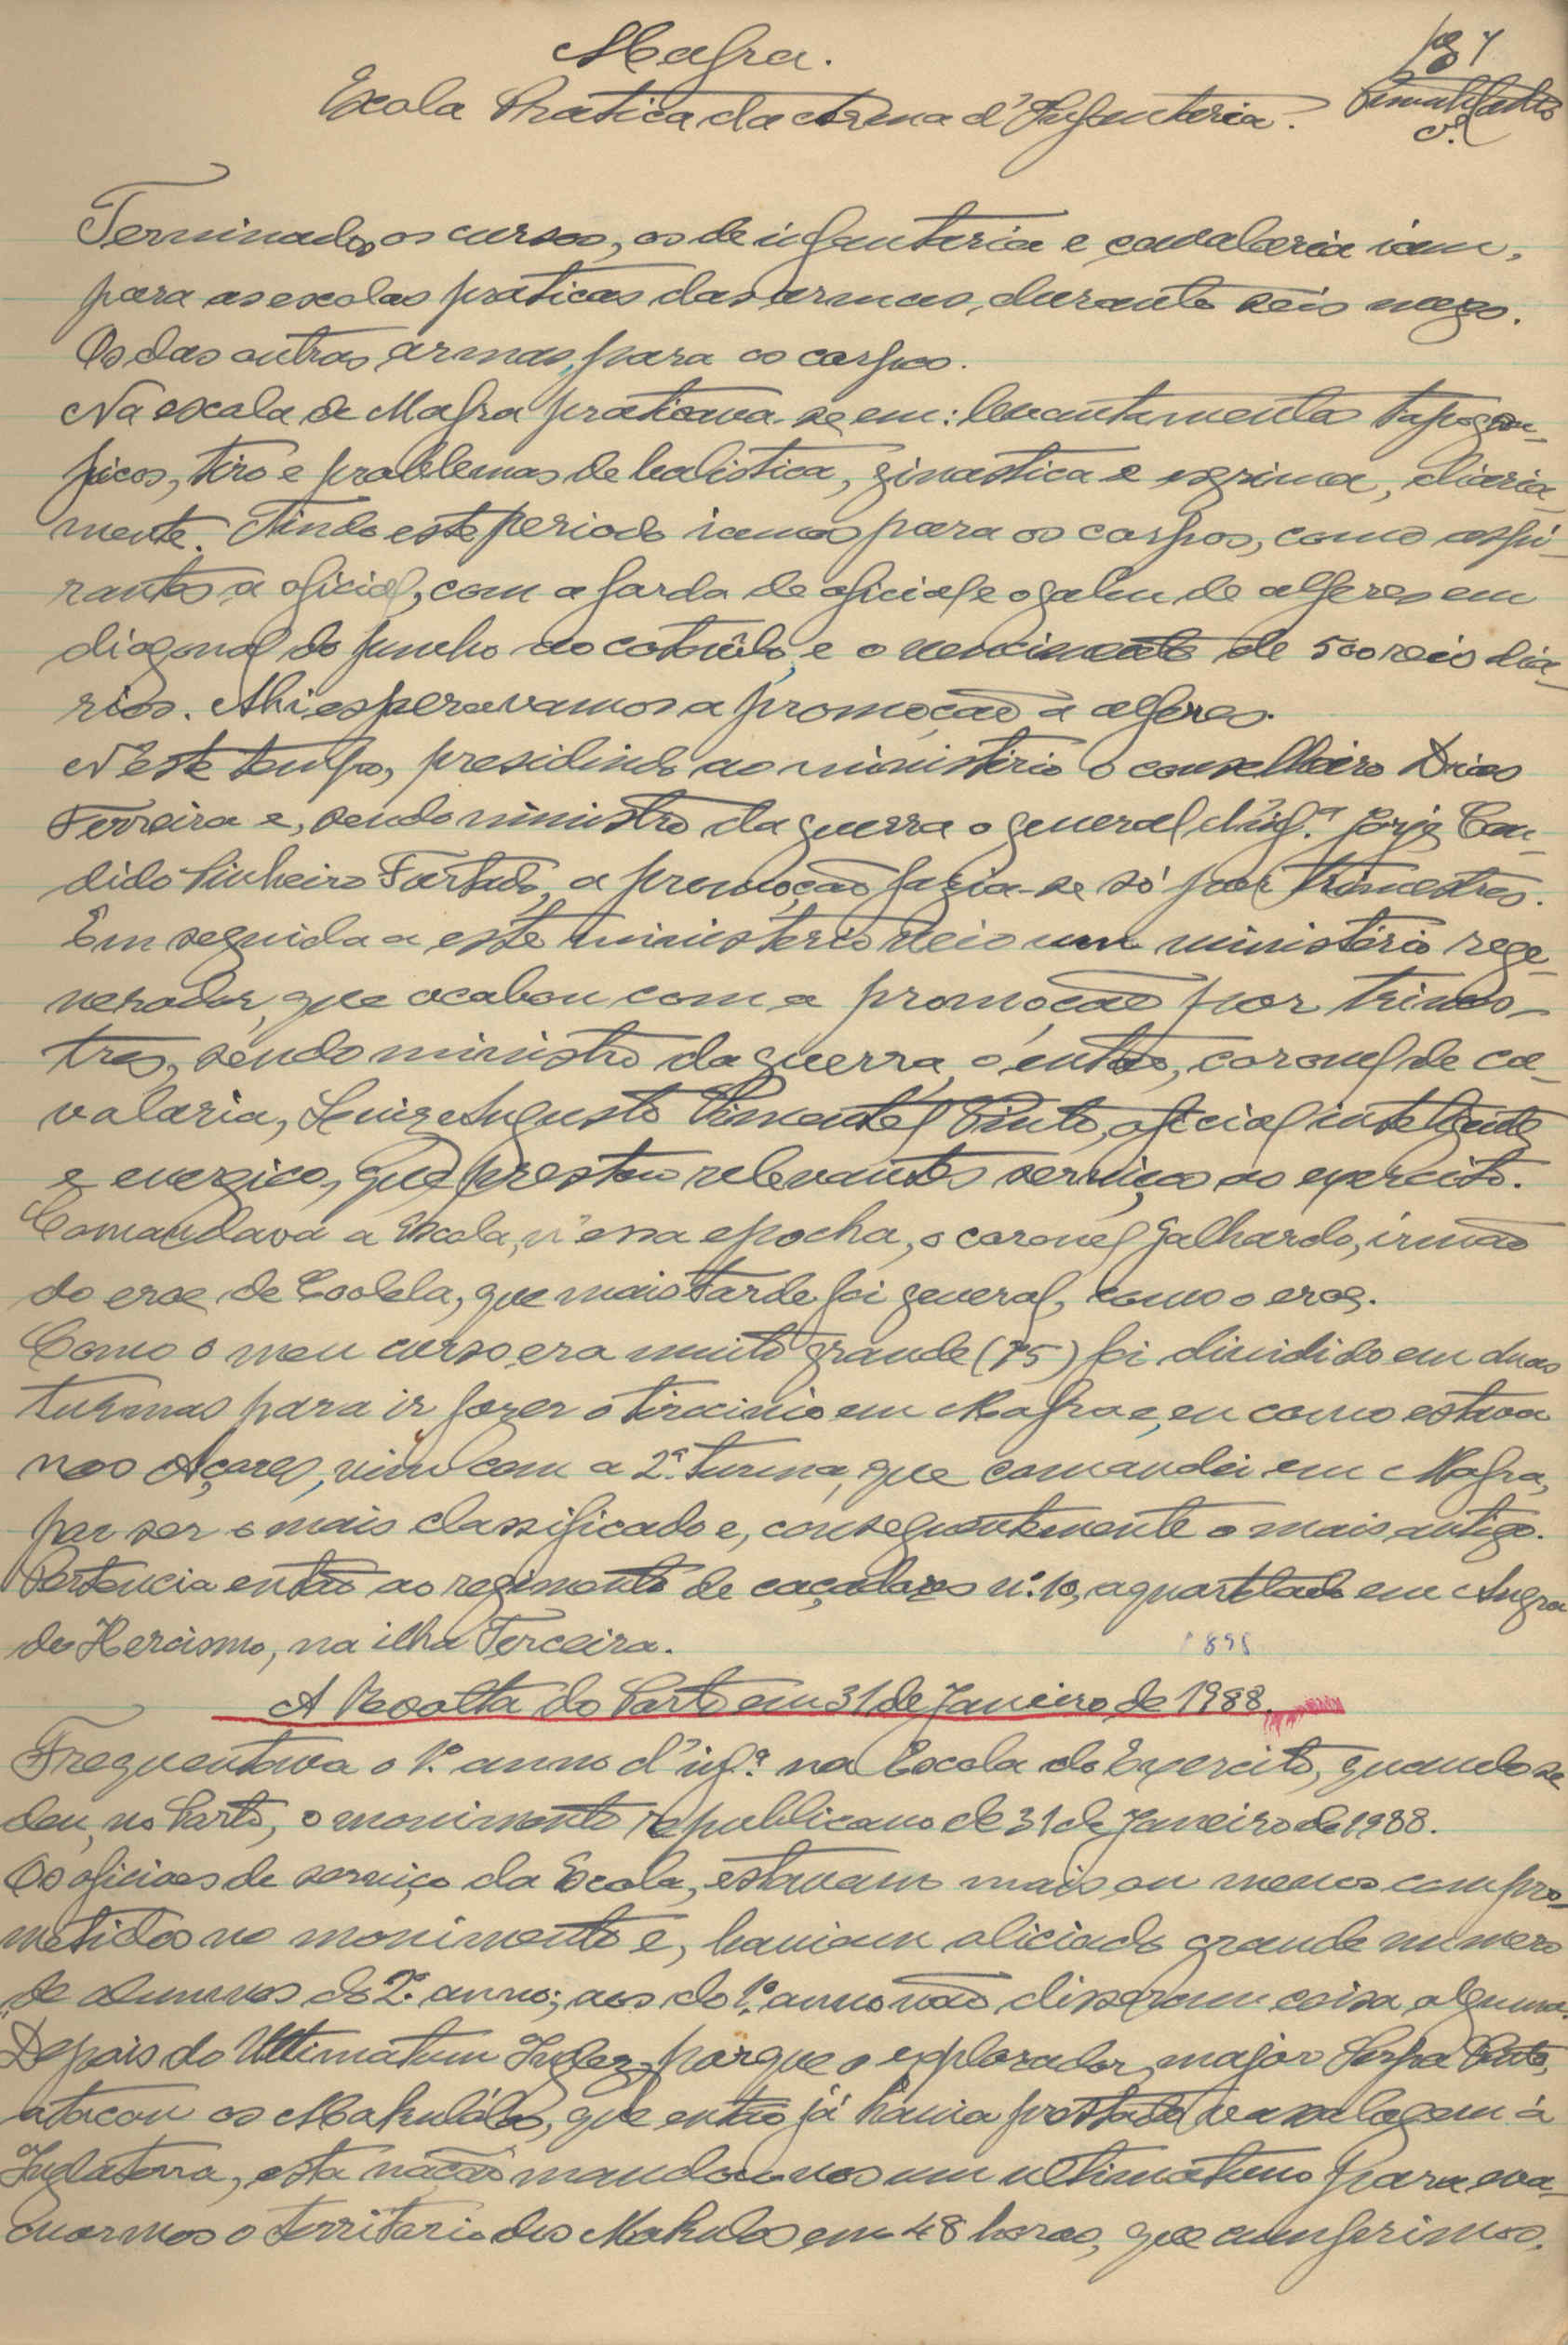 Mafra.
Escola Pratica da Arma d'Infanteria.
Terminados os cursos, os de infanteria e cavalaria iam,
para as escolas praticas das armas, durante seis mezes.
Os das outras armas, para os corpos.
Na escola de Mafra praticava-se em: levantamentos topogra-
ficos, tiro e problemas de balistica, ginastica e esgrima, diaria-
mente. Findo este periodo iamos para os corpos, como aspi-
rantes a oficial, com a farda de oficial e o galão de alferes em
diagonal do punho ao cotovêlo, e o vencimento de 500 reis dia-
rios. Ahi esperavamos a promoção a alferes.
N'este tempo, presidindo ao ministério o conselheiro Dias
Ferreira e, sendo ministro da guerra o general d'inf.ª Jorje Can-
dido Pinheiro Furtado, a promoção fazia-se só por trimestres.
Em seguida a este ministerio veio um ministério rege-
nerador, que acabou com a promoção por trimes-
tres, sendo ministro da guerra, o então, coronel de ca-
valaria, Luiz Augusto Pimentel Pinto, oficial inteligente
e energico, que prestou relevantes serviços ao exercito.
Comandava a Escola, n'essa epocha, o coronel Galhardo, irmão
do eroe de Coolela, que mais tarde foi general, como o eroe.
Como o meu curso era muito grande (75) foi dividido em duas
turmas para ir fazer o tirocinio em Mafra e, eu como estava
nos Açores, vim com a 2.ª turma, que comandei em Mafra,
por ser o mais classificado e, consequentemente o mais antigo.
Pertencia então ao regimento de caçadores n.º 10, aquartelado em Angra
do Heroismo, na ilha Terceira.
A Revolta do Porto em 31 de Janeiro de 1988.
Frequentava o 1.º anno d'inf.ª na Escola do Exercito, quando se
deu, no Porto, o movimento republicano de 31 de Janeiro de 1988.
Os oficiaes de serviço da Escola, estavam mais ou menos compro-
metidos no movimento e, haviam aliciado grande numero
de alumnos do 2.º anno; aos do 1.º anno não disseram coisa alguma.
Depois do Ultimatum Inglez, porque o explorador, major Serpa Pinto,
atacou os Makulólos, que então já havia prestado vassalagem á
Inglaterra, esta nação mandou-nos um ultimatum para eva-
cuarmos o territorio dos Makulos em 48 horas, que cumprimos.